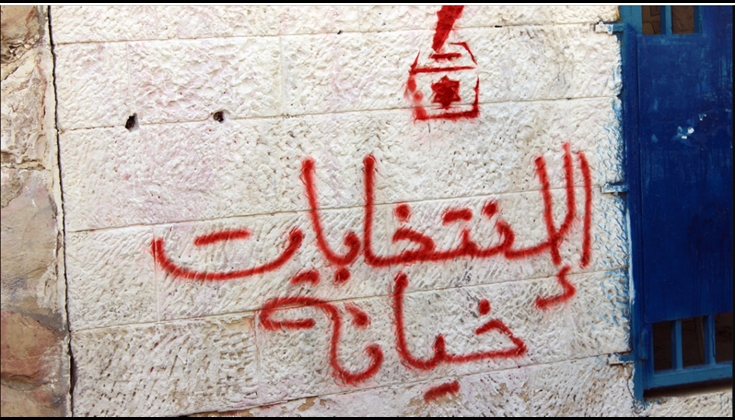 الإنتخابات
خيانة